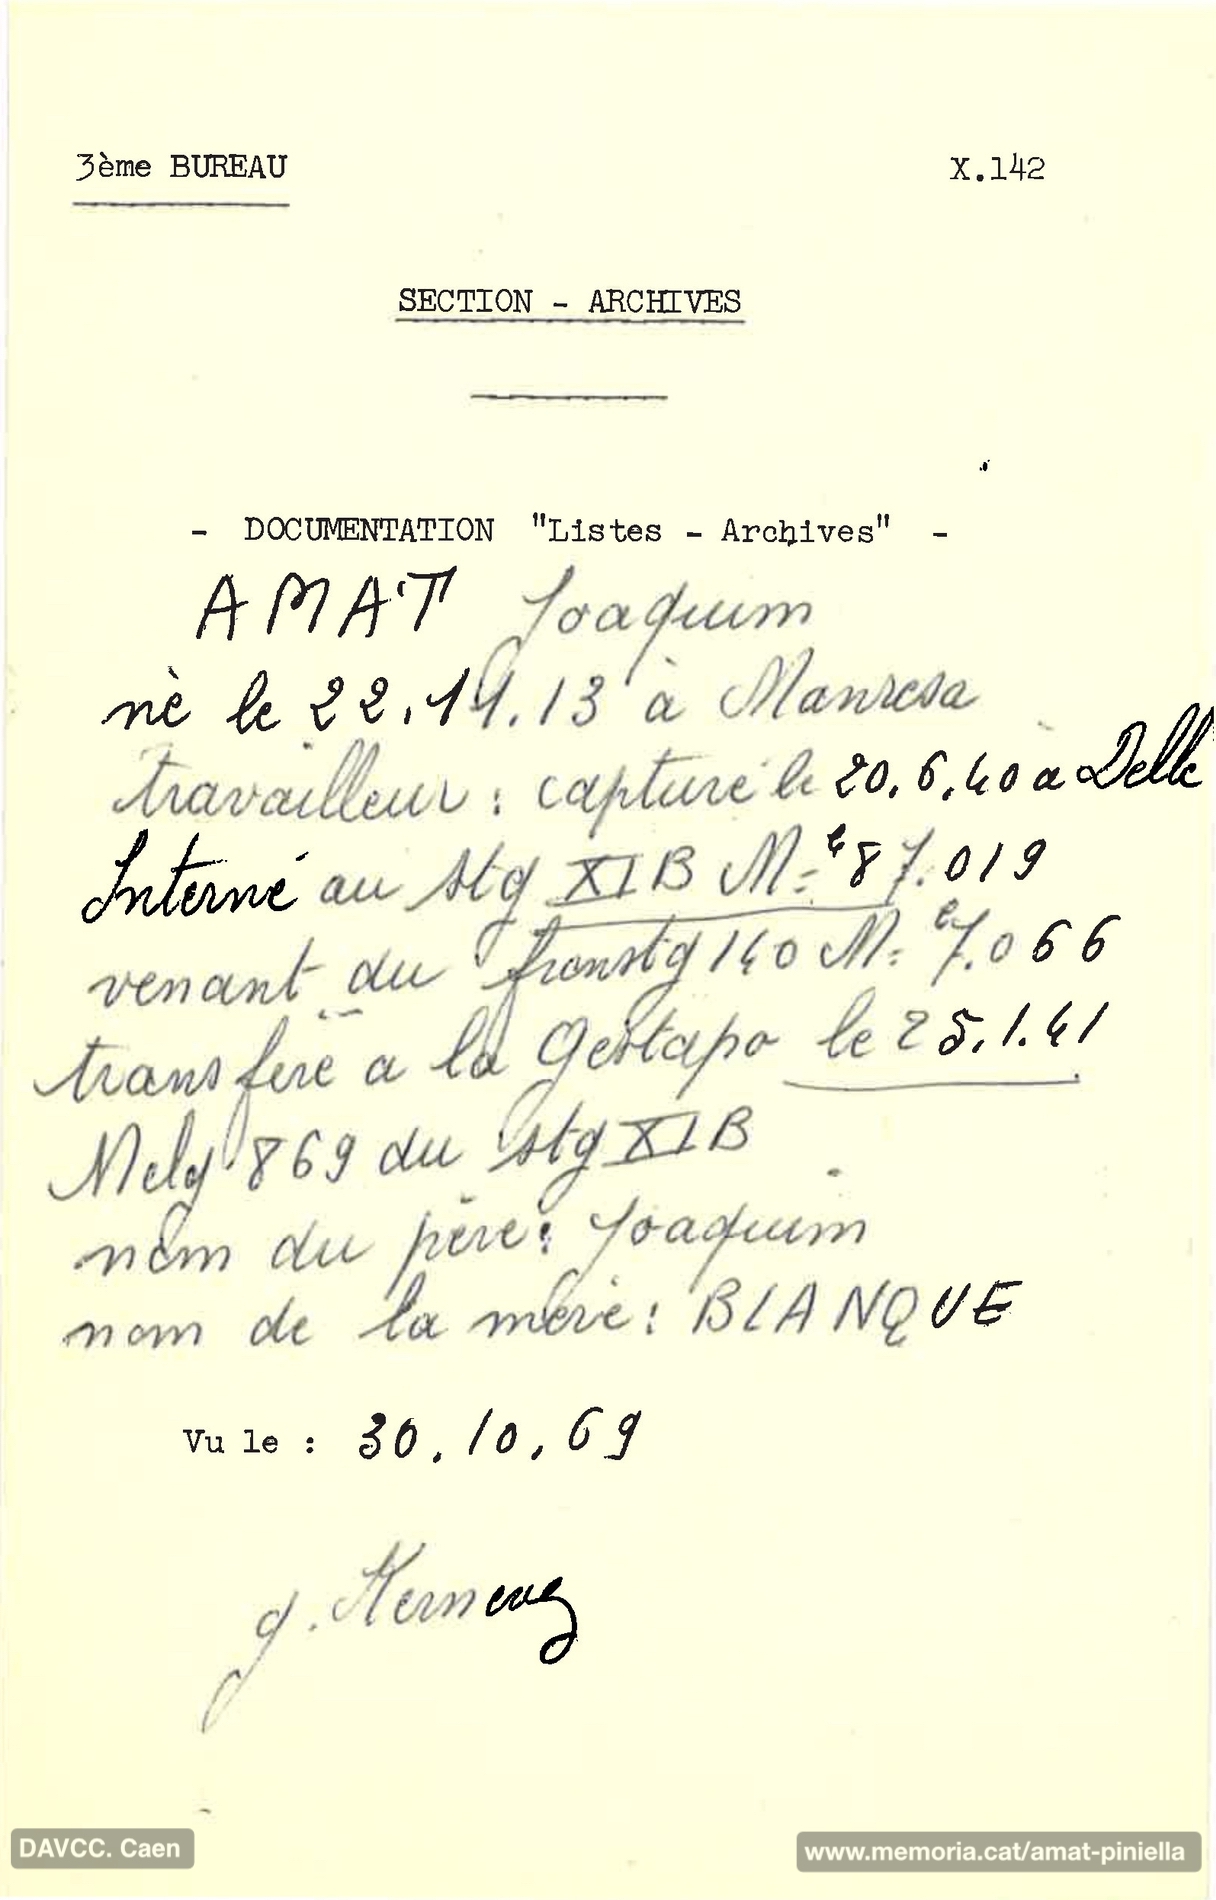 3ème BUREAU
X.142
SECTION - ARCHIVES
- DOCUMENTATION "Listes - Archives" -
AMAT Joaquim
né le 22.11.13 à Manresa
travailleur : capturé le 20.6.40 a Delle
Interné au Stg XIB Mle 87.019
venant du fronstg 140 Mle 7.066
transféré a la Gestapo le 25.1.41
Meldg 869 du Stg XIB
nom du père : Joaquim
nom de la mère : BLANQUE
Vu le : 30.10.69
DAVCC. Caen
www.memoria.cat/amat-piniella